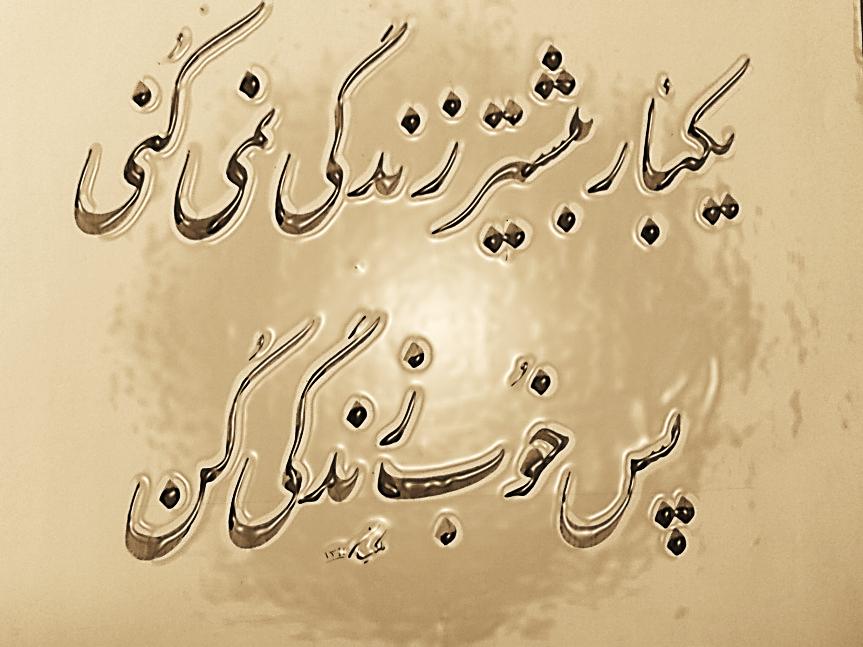 یکبار بیشتر زندگی نمی کُنی
پس خُوب زندگی کُن